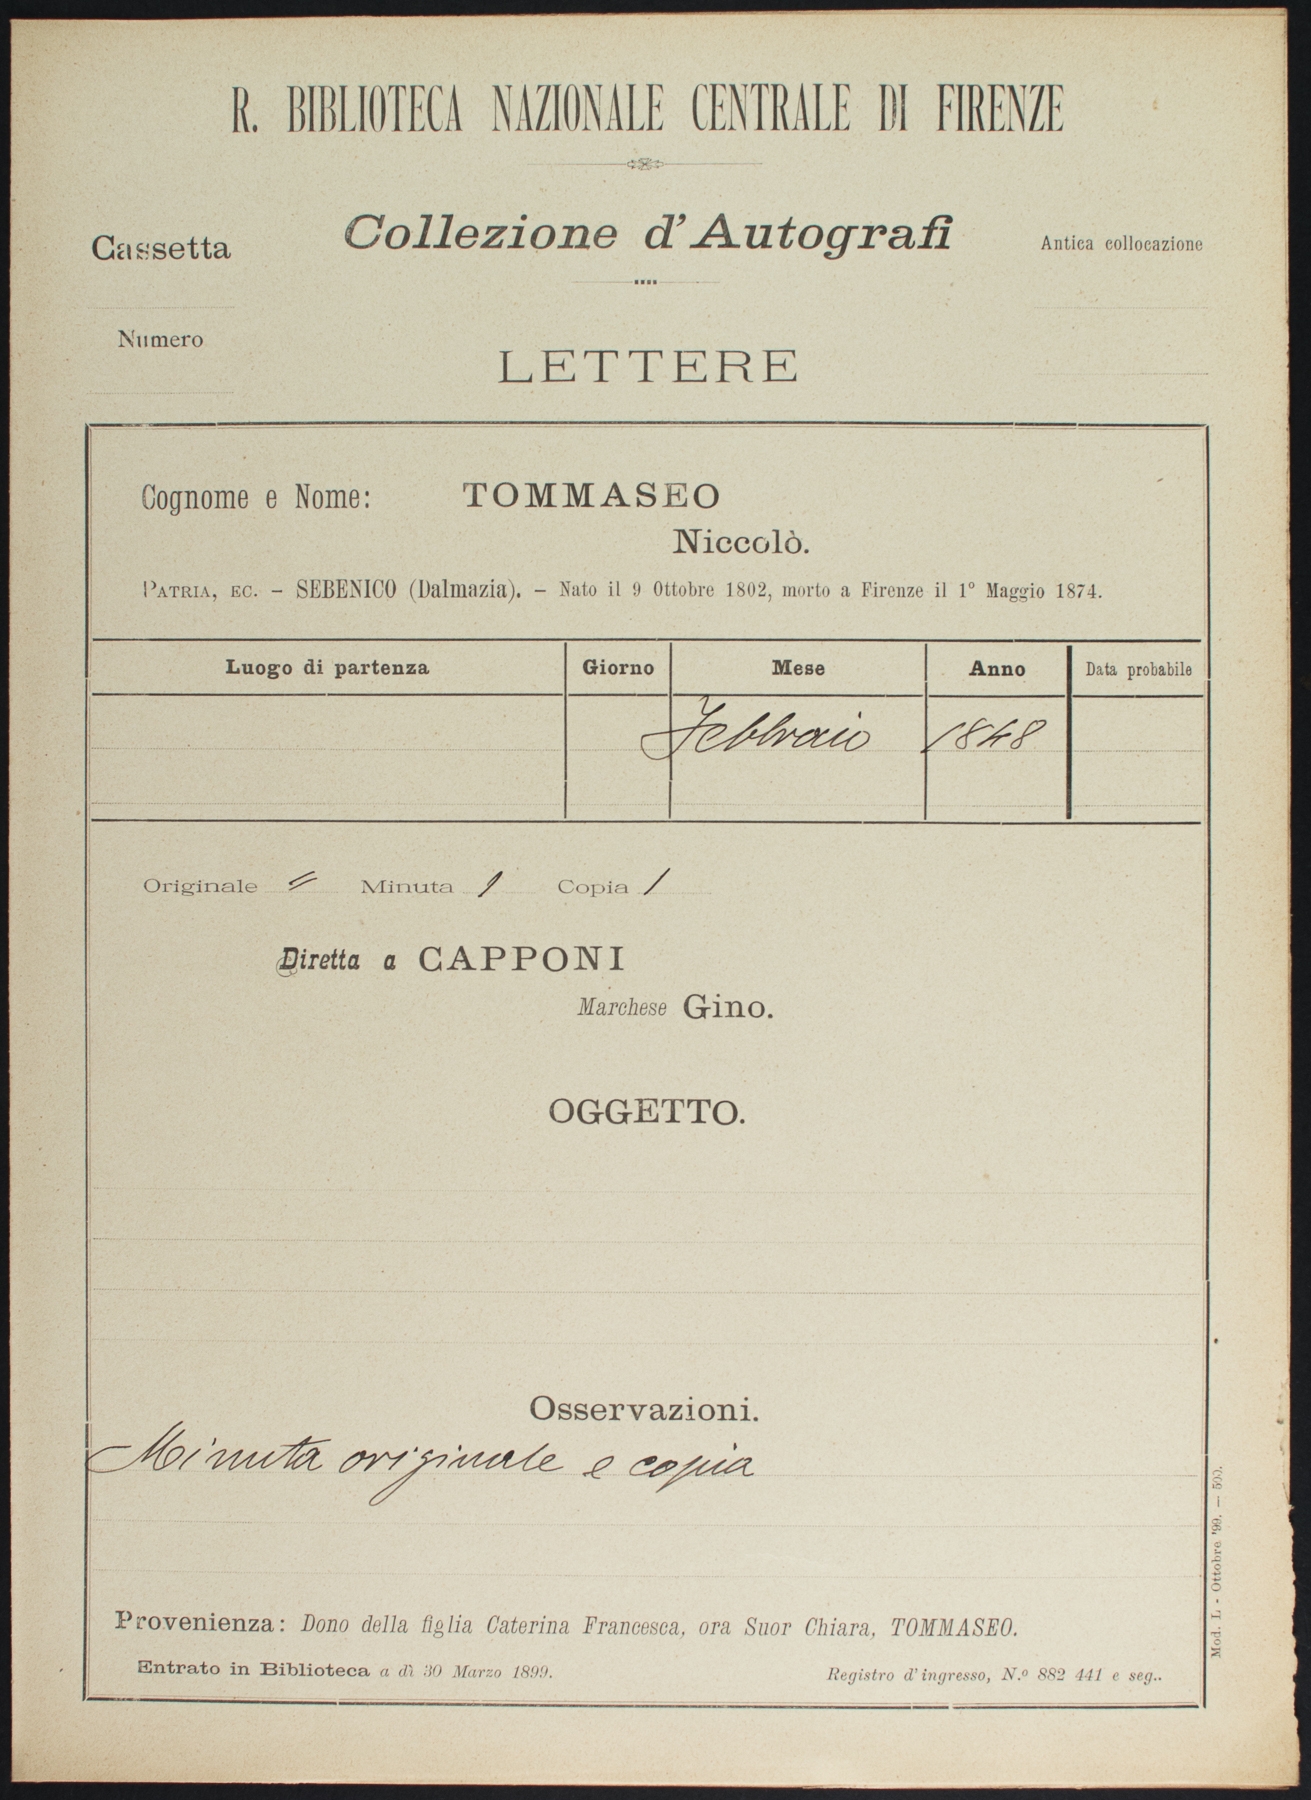 R. BIBLIOTECA NAZIONALE CENTRALE DI FIRENZE
Cassetta
Collezione d'Autografi
Antica collocazione
Numero
LETTERE
Cognome e Nome: TOMMASEO
Niccolò.
PATRIA, EC. – SEBENICO (Dalmazia). – Nato il 9 Ottobre 1802, morto a Firenze il 1° Maggio 1874.
Luogo di partenza Giorno Mese Anno Data probabile
Febbraio 1848
Originale " Minuta 1 Copia 1
Diretta a CAPPONI
Marchese Gino.
OGGETTO.
Osservazioni.
Minuta originale e copia
Provenienza: Dono della figlia Caterina Francesca, ora Suor Chiara, TOMMASEO.
Entrato in Biblioteca a dì 30 Marzo 1899. Registro d'ingresso, N.º 882 441 e seg..
Mod. L - Ottobre '99. — 500.